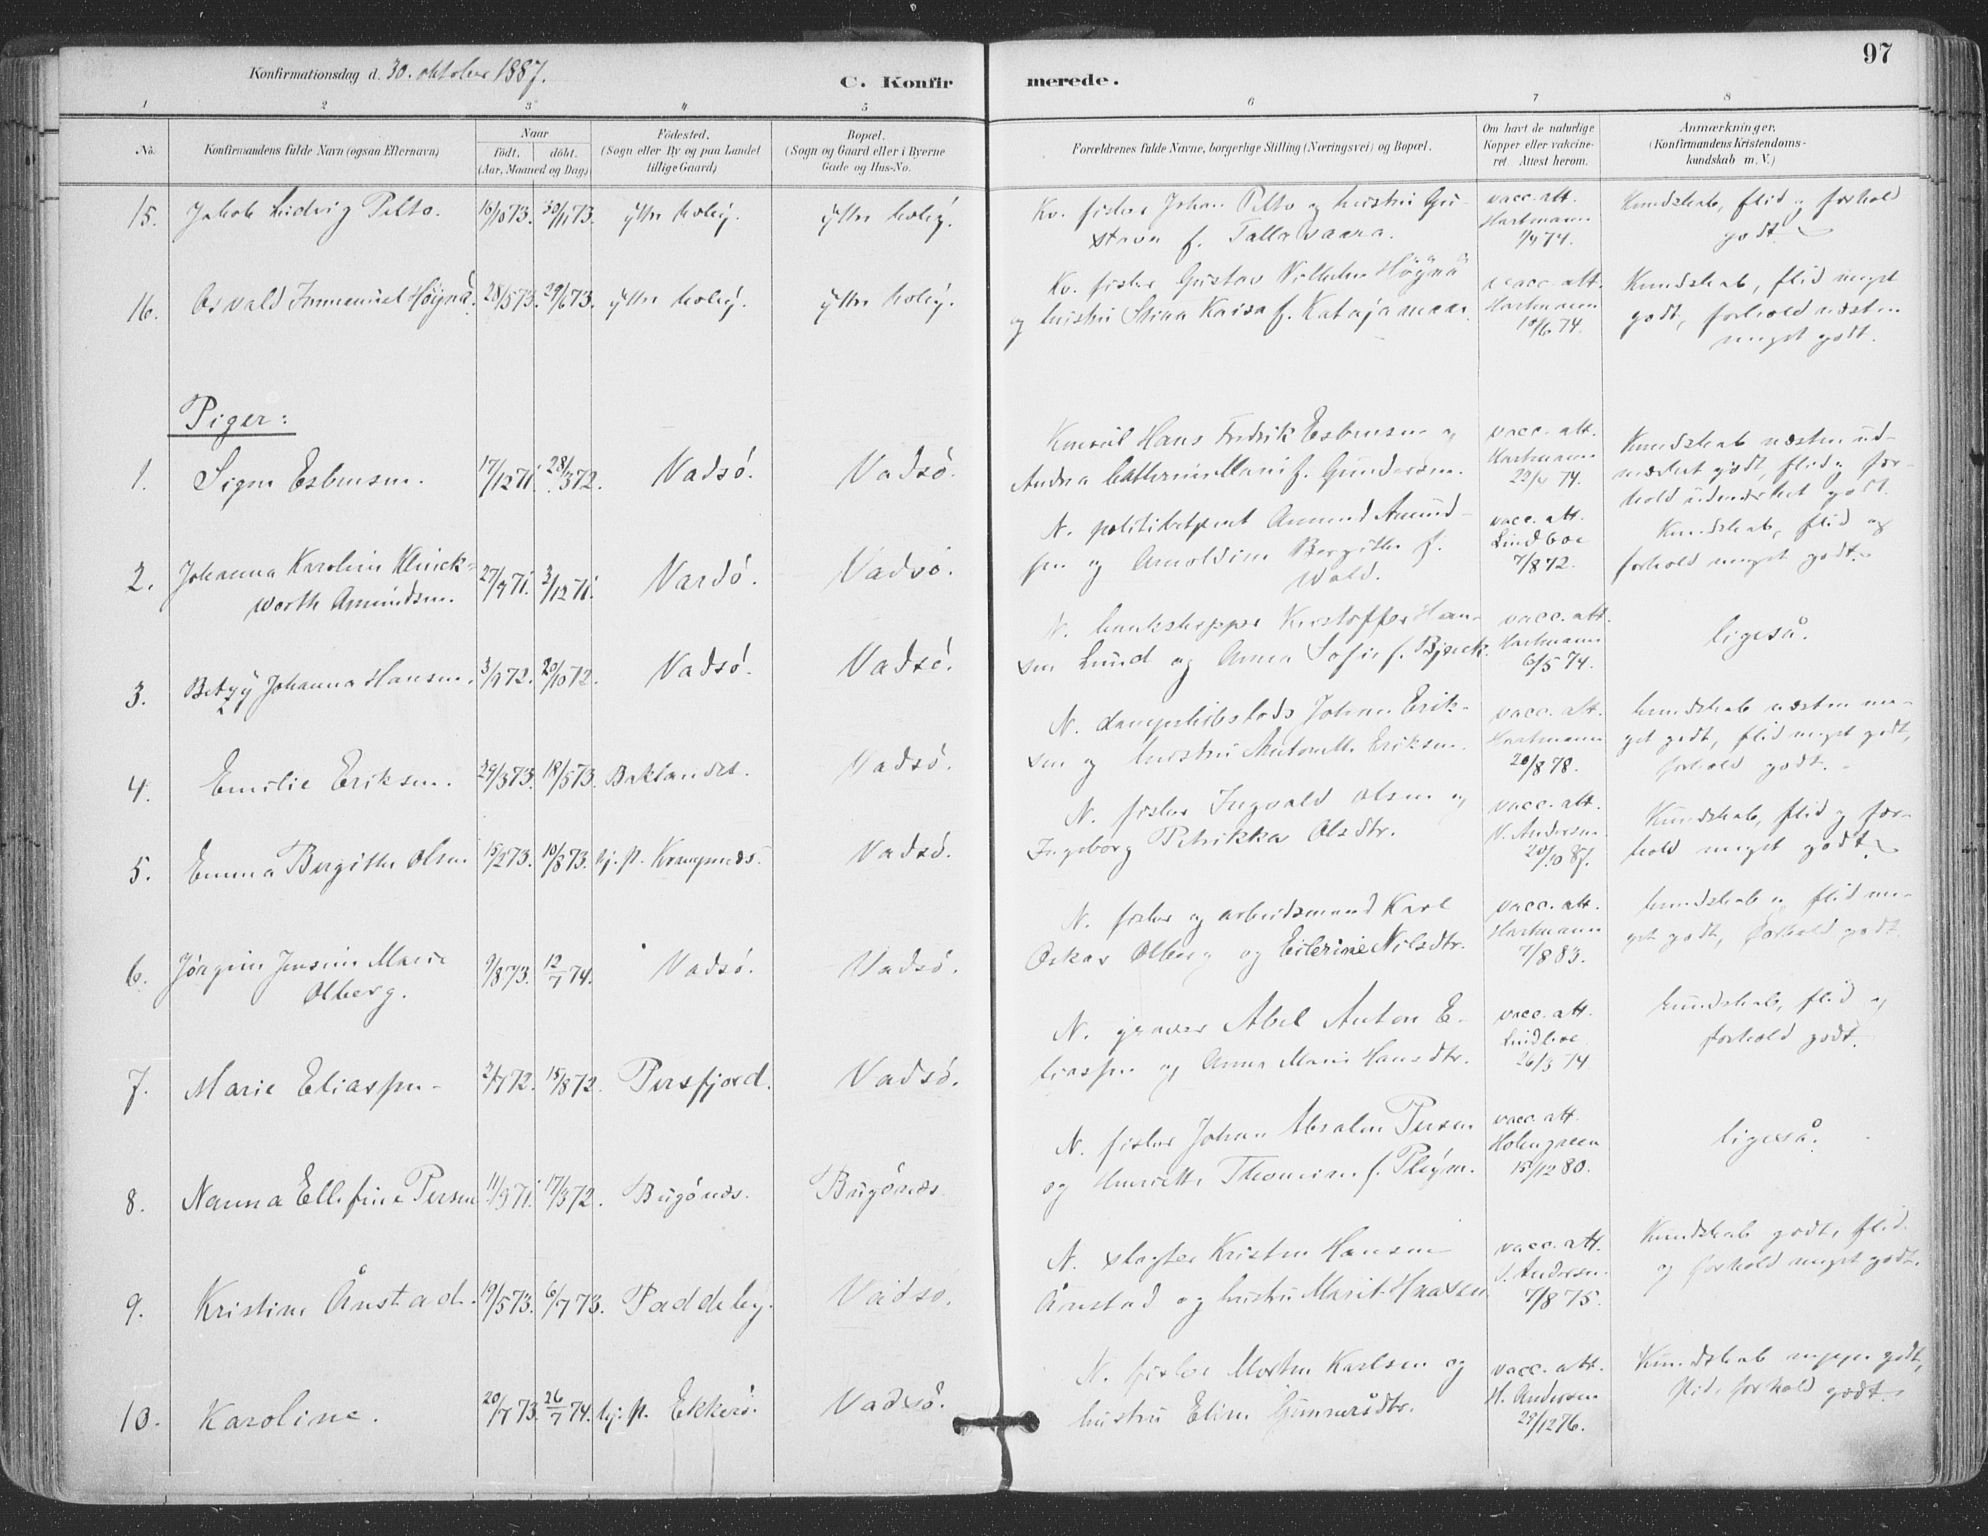 97
Konfirmationsdag d. 30. oktober 1887.
C. Konfirmerede.
1 2 3 4 5 6 7 8
No. Konfirmandens fulde Navn (ogsaa Efternavn) Naar födt. döbt. (Aar, Maaned og Dag) Födested. (Sogn eller By og paa Landet tillige Gaard) Bopæl. (Sogn og Gaard eller i Byerne Gade og Hus-No. Forældrenes fulde Navne, borgerlige Stilling (Næringsvei) og Bopæl. Om havt de naturlige Kopper eller vakcineret. Attest herom. Anmærkninger. (Konfirmandens Kristendomskundskab m. V.)
15. Jakob Ludvig Pelto. 16/10 73. 30/11 73. ytre kvby. ytre kvby.
Kv. fisker Johan Pelto og hustru Gustava f. Tallavaara.
vacc. att. Hartmann 1/7 74.
Kundskab, flid og forhold godt.
16. Osvald Immanuel Höynä. 28/5 73. 29/6 73. ytre kvby. ytre kvby.
Kv. fisker Gustav Vilhelm Höynä
og hustru Stina Kaisa f. Katajamaa.
vacc. att. Hartmann 10/6 74.
Kundskab, flid meget
godt, forhold næsten
meget godt.
Piger:
1. Signe Esbensen. 17/12 71. 28/3 72. Vadsö. Vadsö.
Konsul Hans Fredrik Esbensen og
Andrea Cathrine Marie f. Gundersen.
vacc. att. Hartmann 74.
Kundskab næsten udmærket godt, flid og forhold udmærket godt.
2. Johanna Karoline Klinckworth Amundsen. 27/9 71. 3/12 71. Vardö. Vadsö.
N. politibetjent Amund Amundsen og Arnoldine Bergitte f.
Wold.
vacc. att. Lindboe 7/8 72.
Kundskab, flid og
forhold meget godt.
3. Betzy Johanna Hansen. 3/9 72. 20/10 72. Vadsö. Vadsö.
N. Kristoffer Hansen Lund og Anna Sofie f. Bjerck.
vacc. att. Hartmann 6/5 74.
ligeså.
4. Emilie Eriksen. 29/3 73. 18/5 73. Baklandet. Vadsö.
N. dampskibslods Johan Eriksen og hustru Antonette Eriksen.
vacc. att. Hartmann 20/8 78.
kundskab næsten meget godt, flid meget godt,
forhold godt.
5. Emma Bergitte Olsen 15/2 73. 10/8 73. Krampenæs. Vadsö.
N. fisker Ingvald Olsen og
Ingeborg Petrikka Olsdtr.
vacc. att. N. Andersen 20/10 87.
Kundskab, flid og forhold meget godt.
6. Jörgine Jensine Marie
Olberg. 9/8 73. 12/7 74. Vadsö. Vadsö.
N. fisker og arbeidsmand Karl
Oskar Olberg og Eilerine Nilsdtr.
vacc. att. Hartmann 7/8 83.
kundskab og flid meget godt, forhold godt.
7. Marie Eliassen 2/7 72. 15/8 72. Persfjord. Vadsö.
N. graver Abel Anton Eliassen og Anna Marie Hansdtr.
vacc. att. Lindboe 26/3 74
kundskab, flid og
forhold godt.
8. Nanna Ellefine Persen 11/9 71. 17/3 72. Bugönæs. Bugönæs
N. fisker Johan Absalon Persen
og Henriette Thomine f. Pleym.
vacc. att. Holmgreen 15/12 80.
ligeså.
9. Kristine Ånstad. 19/5 73. 6/7 73. Paddeby. Vadsö.
N. slagter Kristen Hansen
Ånstad og hustru Marit Knaxen
vacc. att. Andersen 7/8 75.
Kundskab godt, flid
og forhold meget godt.
10. Karoline. 20/7 73. 26/7 74. Ekkerö. Vadsö.
N. fisker Morten Karlsen og
hustru Eline Gunnarsdtr.
vacc. att. H. Andersen 28/12 76.
Kundskab neppe godt,
flid, forhold godt.